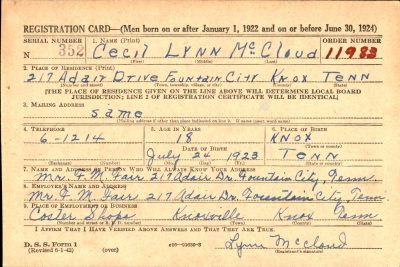 REGISTRATION CARD—(Men born on or after January 1, 1922 and on or before June 30, 1924)
SERIAL NUMBER 1. NAME (Print) ORDER NUMBER
N 352 Cecil Lynn McCloud 11983
(First) (Middle) (Last)
2. PLACE OF RESIDENCE (Print)
217 Adair Drive Fountain City Knox Tenn
(Number and street) (Town, township, village, or city) (County) (State)
[THE PLACE OF RESIDENCE GIVEN ON THE LINE ABOVE WILL DETERMINE LOCAL BOARD
JURISDICTION; LINE 2 OF REGISTRATION CERTIFICATE WILL BE IDENTICAL]
3. MAILING ADDRESS
Same
[Mailing address if other than place indicated on line 2. If same insert word same]
4. TELEPHONE 5. AGE IN YEARS 6. PLACE OF BIRTH
6-1214 18 Knox
DATE OF BIRTH (Town or county)
July 24 1923 Tenn
(Exchange) (Number) (Mo.) (Day) (Yr.) (State or country)
7. NAME AND ADDRESS OF PERSON WHO WILL ALWAYS KNOW YOUR ADDRESS
Mr. F. M. Fair 217 Adair Dr. Fountain City, Tenn.
8. EMPLOYER'S NAME AND ADDRESS
Mr. F. M. Fair 217 Adair Dr. Fountain City, Tenn.
9. PLACE OF EMPLOYMENT OR BUSINESS
Coster Shops Knoxville Knox Tenn
(Number and street or R. F. D. number) (Town) (County) (State)
I AFFIRM THAT I HAVE VERIFIED ABOVE ANSWERS AND THAT THEY ARE TRUE.
D. S. S. Form 1
(Revised 6-1-42) (over) Lynn McCloud
(Registrant's signature)